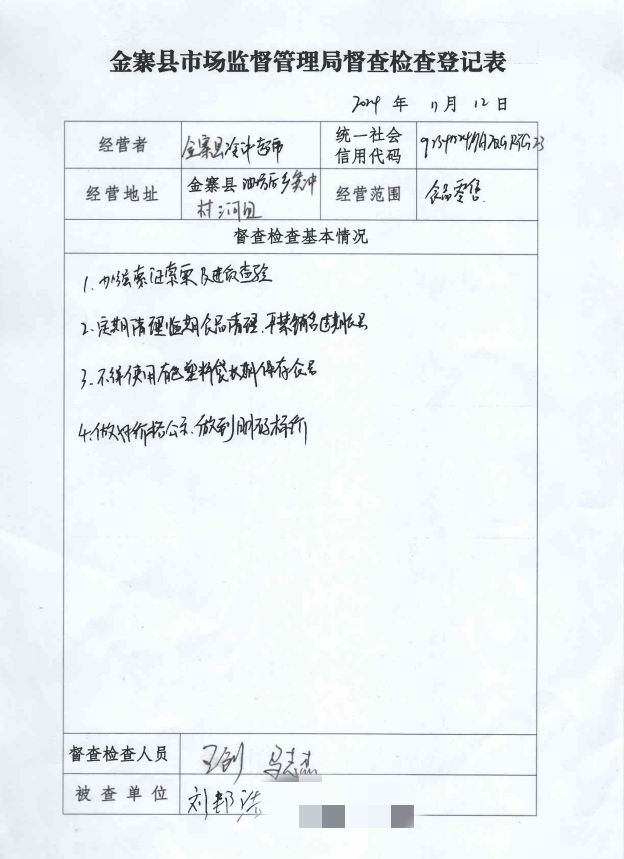 金寨县市场监督管理局督查检查登记表
2024 年 11 月 12 日
经营者 金寨县冷冲超市 统一社会信用代码
经营地址 金寨县油坊店乡 村河组 经营范围 食品零售
督查检查基本情况
1.加强索证索票及进货查验
2.定期清理临期食品清理.严禁销售过期食品
3.不得使用有色塑料袋长期保存食品
4.做好价格公示.做到明码标价
督查检查人员 王剑 马志杰
被查单位 刘邦